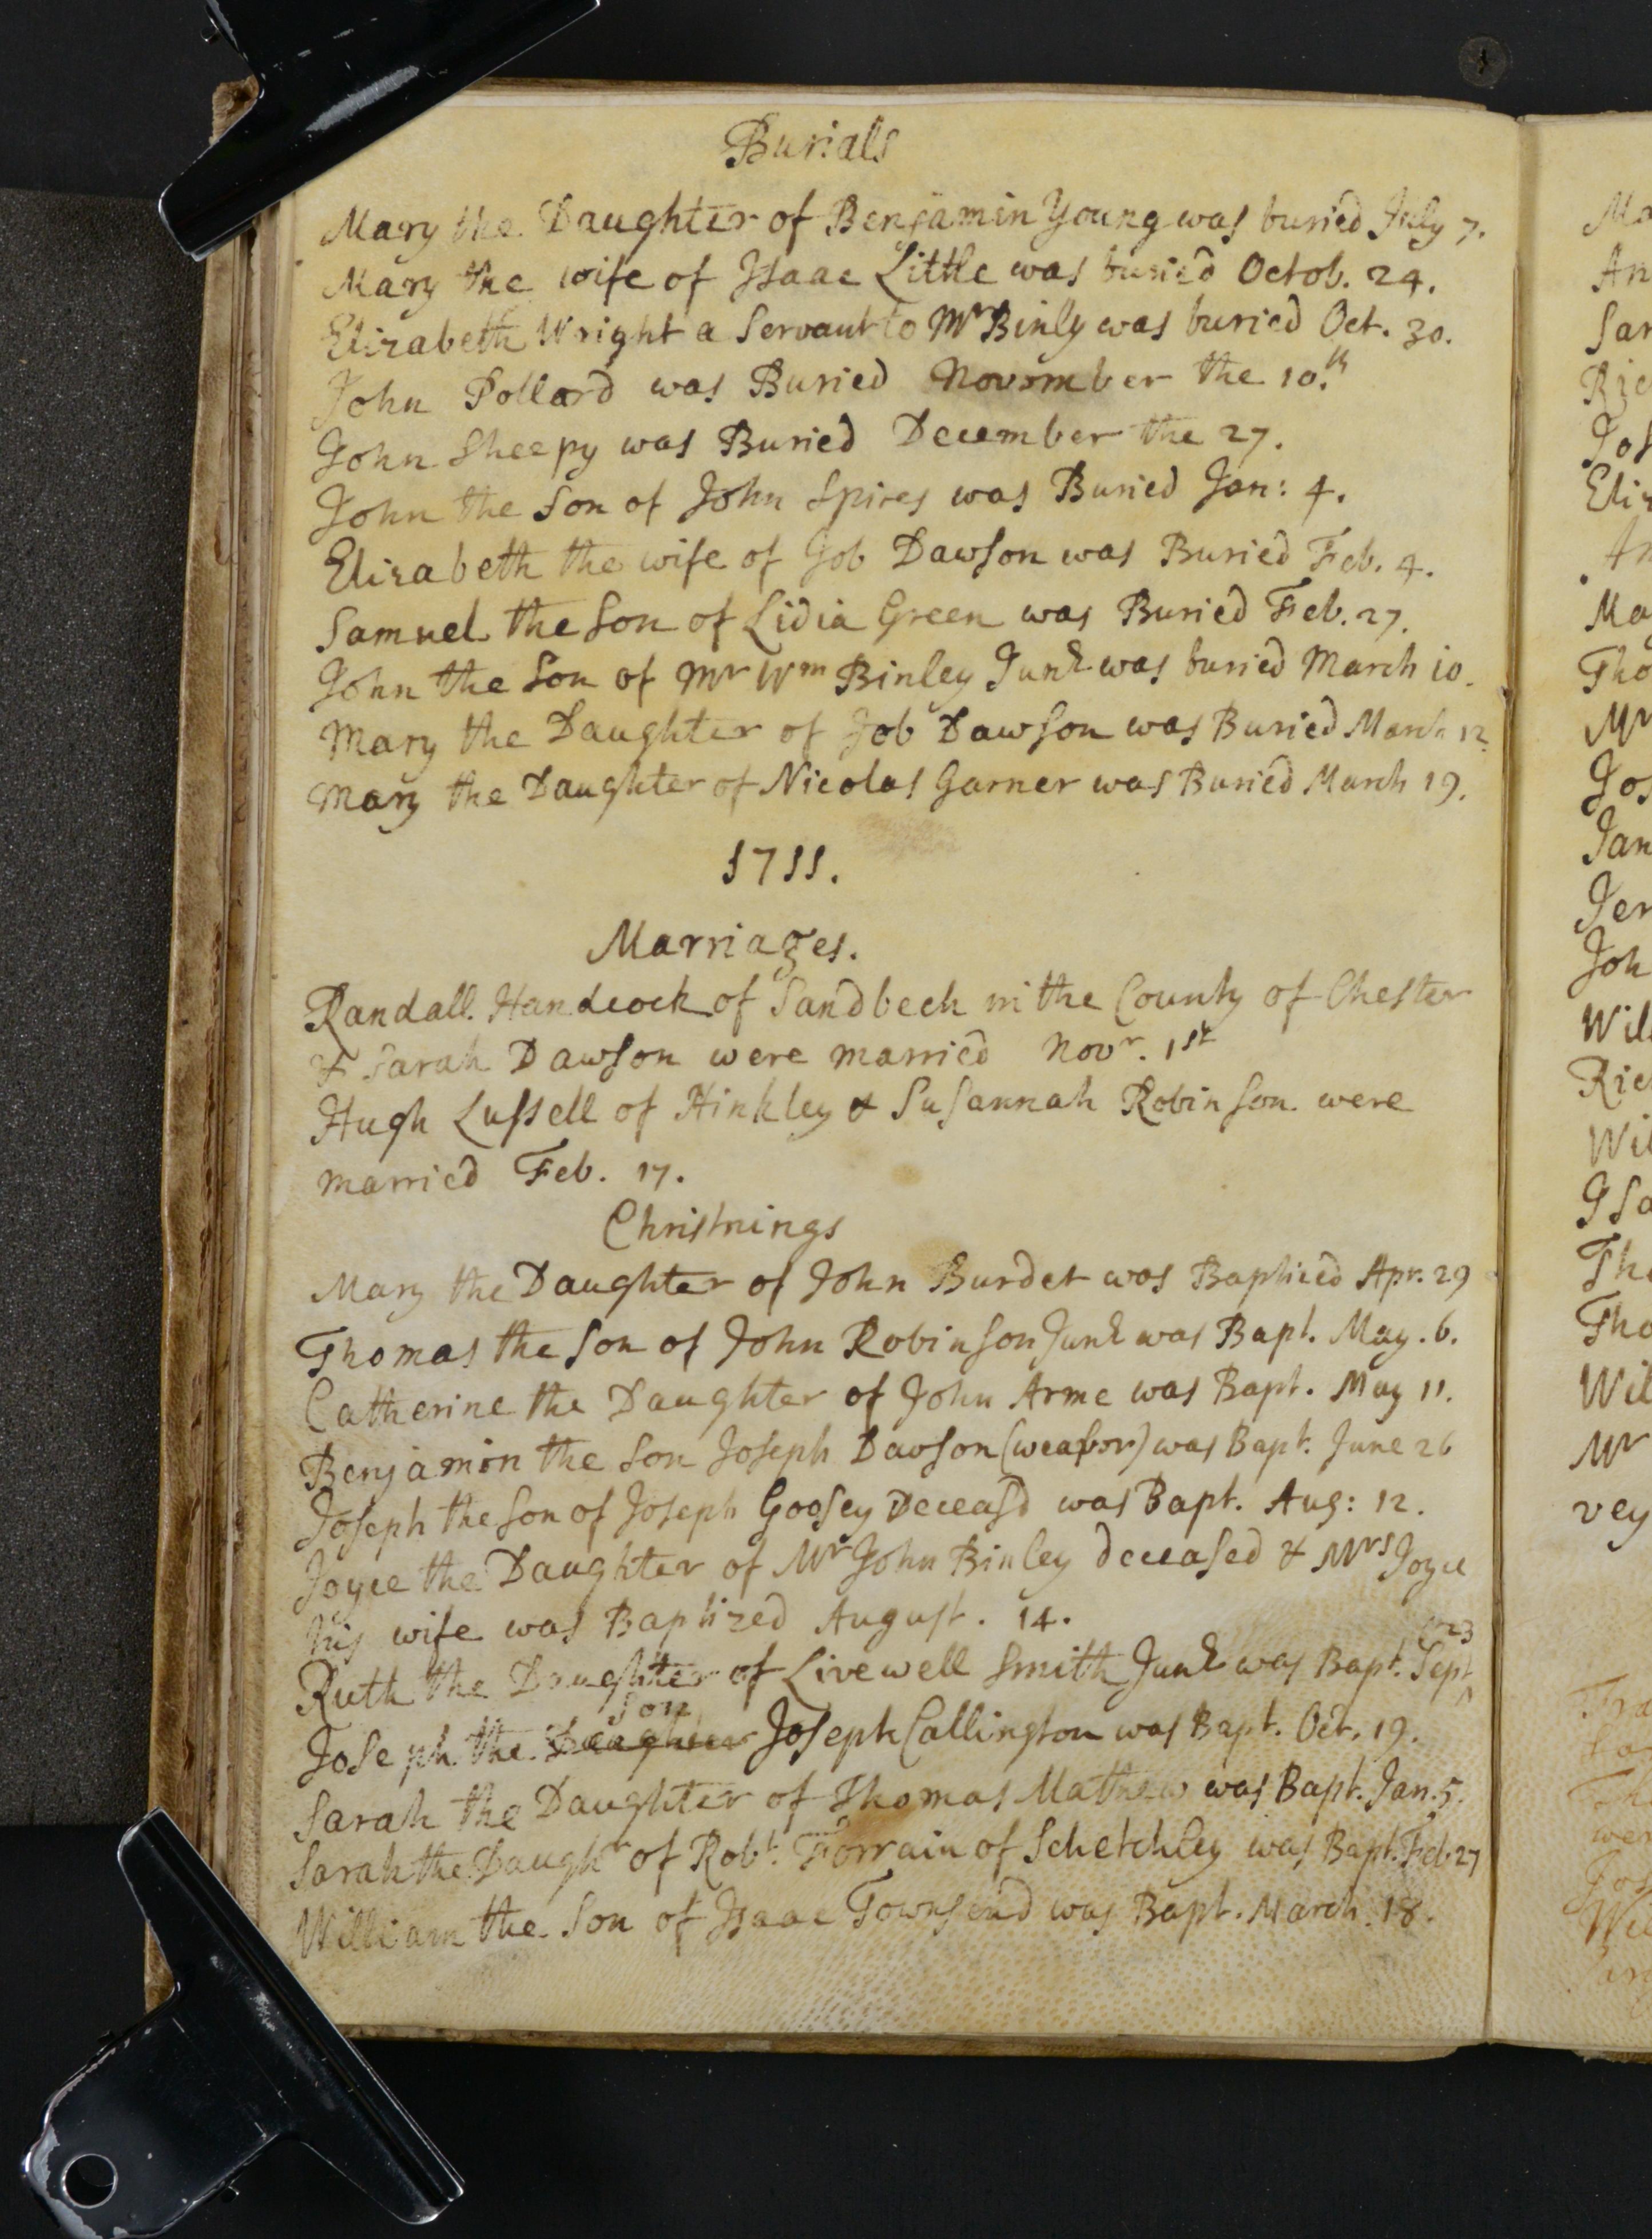 Burials
Mary the Daughter of Benjamin Young was buried July 7.
Mary the wife of Isaac Little was buried Octob. 24.
Elizabeth Wright a Servant to Mr Binly was buried Oct. 30.
John Pollard was Buried November the 10.th
John Sheepy was Buried December the 27.
John the Son of John Spires was Buried Jan: 4.
Elizabeth the wife of Job Dawson was Buried Feb. 4.
Samuel the Son of Lidia Green was Buried Feb. 27.
John the Son of Mr Wm Binley Junr was buried March 10.
Mary the Daughter of Job Dawson was Buried March 12.
Mary the Daughter of Nicolas Garner was Buried March 19.
1711.
Marriages.
Randall Handcock of Sandbech in the County of Chester
& Sarah Dawson were married Novr. 1st
Hugh Lussell of Hinkley & Susannah Robinson were
married Feb. 17.
Christnings
Mary the Daughter of John Burdet was Baptized Apr. 29
Thomas the Son of John Robinson Junr was Bapt. May. 6.
Catherine the Daughter of John Arme was Bapt. May 11.
Benjamin the Son Joseph Dawson (weafor) was Bapt. June 26
Joseph the Son of Joseph Goosey Deceasd was Bapt. Aug: 12.
Joyce the Daughter of Mr John Binley deceased & Mrs Joyce
his wife was Baptized August. 14.
Ruth the Daughter of Livewell Smith Junr was Bapt. Sept 23
Joseph the Daughter Son Joseph Callington was Bapt. Oct. 19.
Sarah the Daughter of Thomas Mathew was Bapt. Jan. 5.
Sarah the Daughr of Robt. Forrain of Schetchley was Bapt. Feb 27
William the Son of Isaac Townsend was Bapt. March. 18.
Ma
An
Sar
Ric
Jos
Eliz
An
Ma
Tho
Mr
Jos
Jan
Jer
Joh
Will
Ric
Wil
Isa
Tho
Tho
Wil
Mr
vey